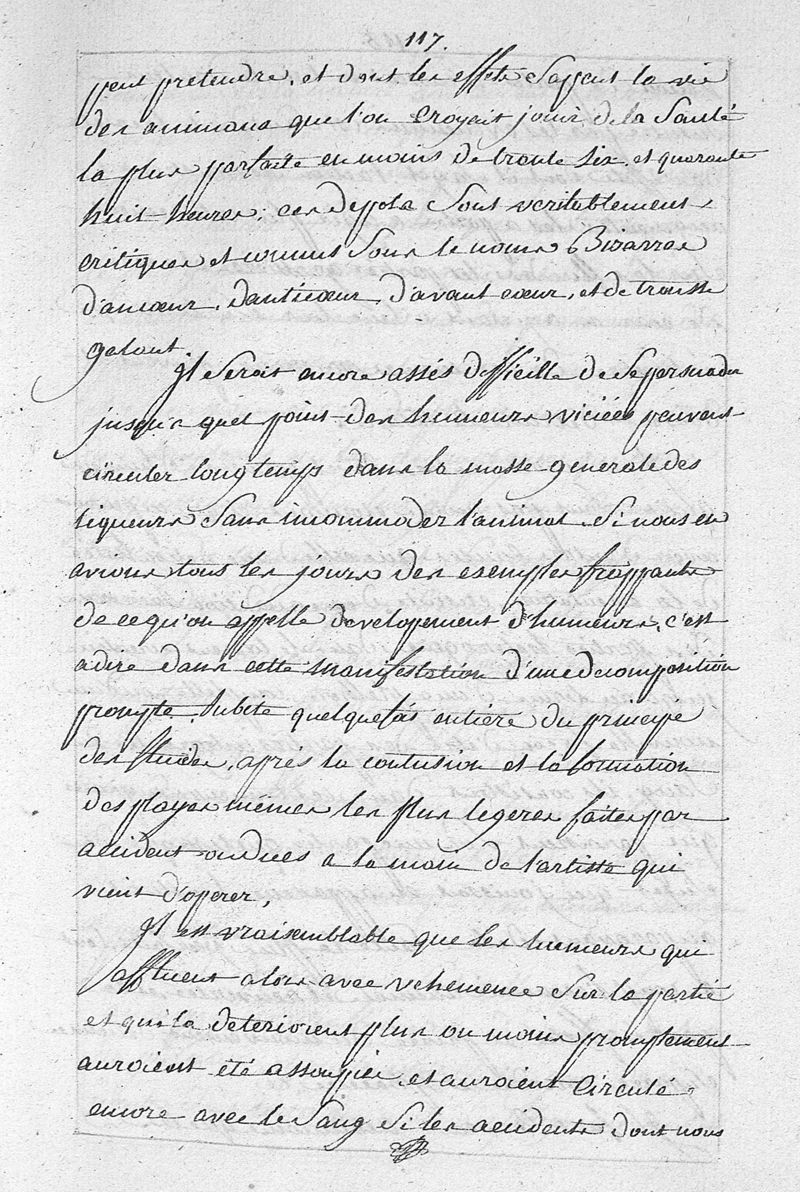 117.
peut pretendre, et dont les effets Sappent la vie
des animaux que l'on croyait jouir de la Santé
la plus parfaite en moins de trente six, et quarante
huit heures; ces depots Sont veritablement
critiques et connus Sous le nom Bizarre
d'ancœur, danticœur, d'avant cœur, et de trousse
galant
Il Seroit encore assés difficille de Se persuader
jusqu'a quel point des humeurs viciées peuvent
circuler longtemps dans la masse generale des
liqueurs Sans incommoder l'animal. Si nous en
avions tous les jours des exemples frappants
de ce qu'on appelle developement d'humeurs, c'est
adire dans cette manifestation d'une decomposition
prompte, Subite quelquefois entiere du principe
des fluides, après la contusion et la formation
des playes memes les plus legeres faites par
accident ou dues a la main de l'artiste qui
vient d'operer,
Il est vraisemblable que les humeurs qui
affluent alors avec vehemence Sur la partie
et qui la deteriorent plus ou moins promptement
auroient été assoupies, et auroient Circulé
encore avec le Sang Si les accidents dont nous